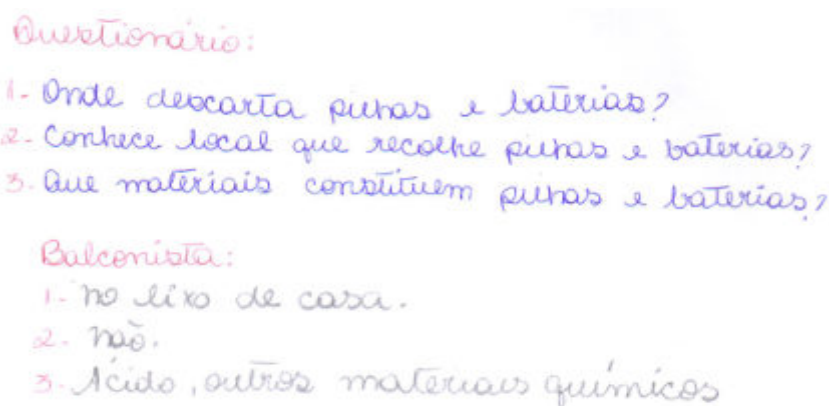 Questionário:
1- Onde descarta pilhas e baterias?
2- Conhece local que recolhe pilhas e baterias?
3- Que materiais constituem pilhas e baterias?
Balconista:
1- No lixo de casa.
2- Não.
3- Ácido, outros materiais químicos